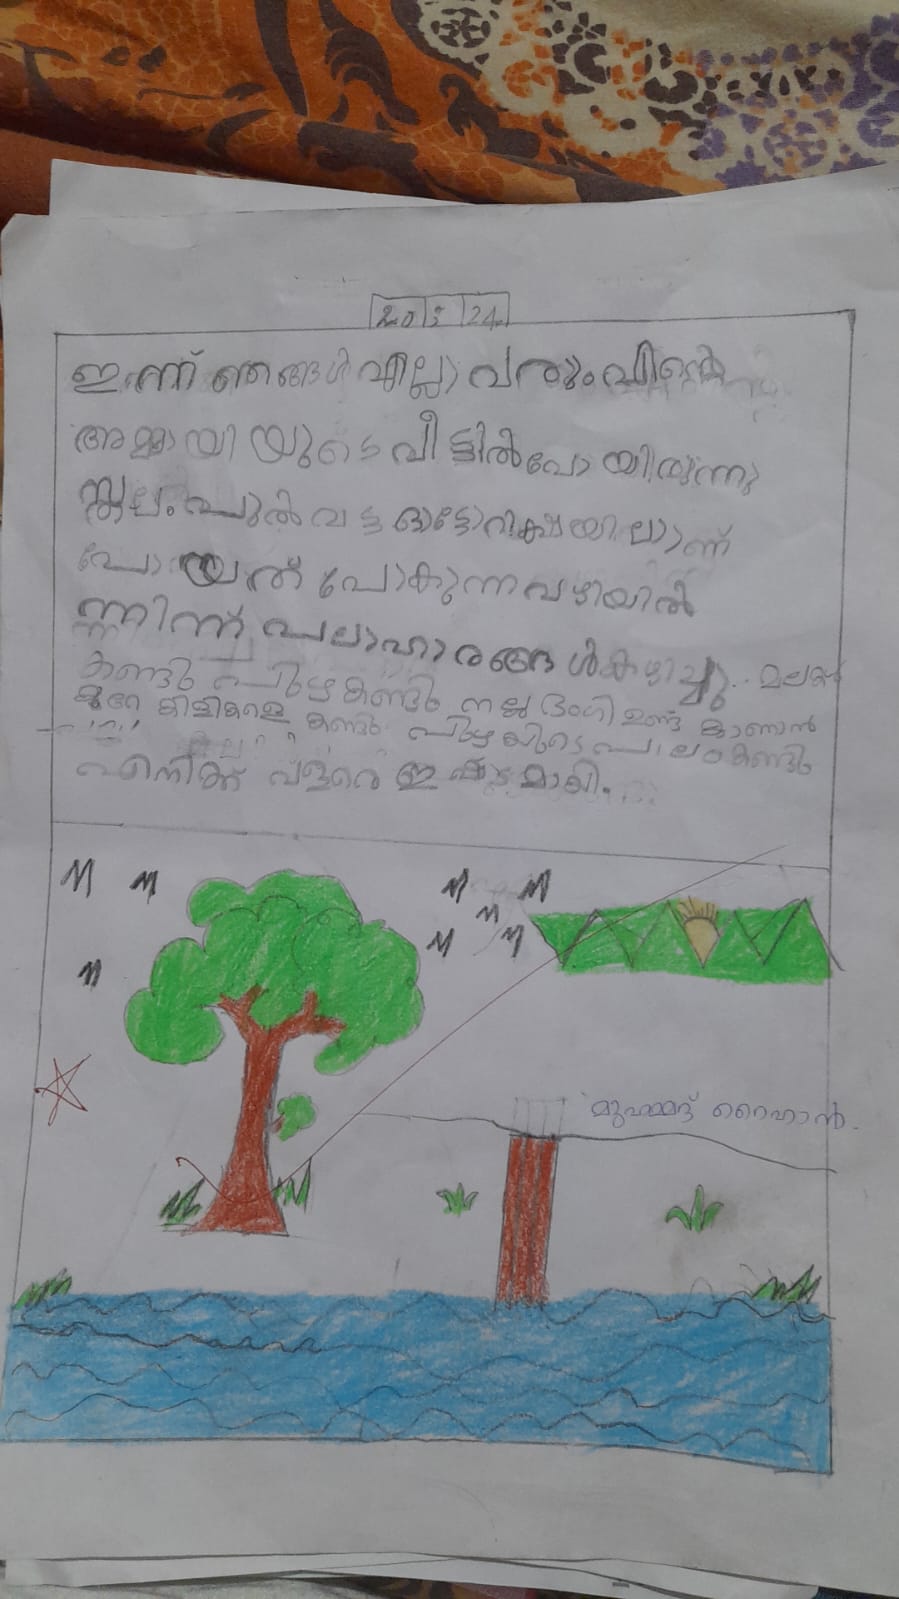 20 3 24
ഇന്ന് ഞങ്ങൾ എല്ലാ വരും
അമ്മായി യുടെ വീട്ടിൽ പോ യിരുന്നു
സ്ഥലം പുൽ വട്ട ഓട്ടോറിക്ഷയി ലാണ്
പോ യത് പോകുന്ന വഴിയിൽ
ന്നിന്ന് പലാഹാ രങ്ങ ൾ കഴി ച്ചു.. മലകൾ
കണ്ടു പുഴ കണ്ടു നല്ല ഭംഗി ഉണ്ട് കാണാൻ
കുറേ കിളികളെ കണ്ടു പുഴ യുടെ പാ ലം കണ്ടു
എനിക്ക് വളരെ ഇ ഷ്ട മായി.
മുഹമ്മദ് റൈഹാൻ.